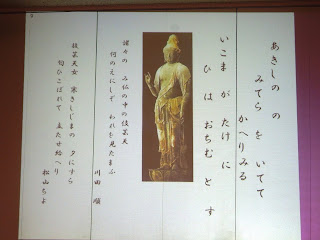 あきしの の
みてら を いでて
かへりみる
いこま が たけ に
ひ は おちむ と す
諸々の み仏の中の伎芸天
何のえにしぞ われを見たまふ
川田 順
伎芸天女 寒きしじまの 夕にすら
匂ひこぼれて 立たせ給へり
松山ちよ